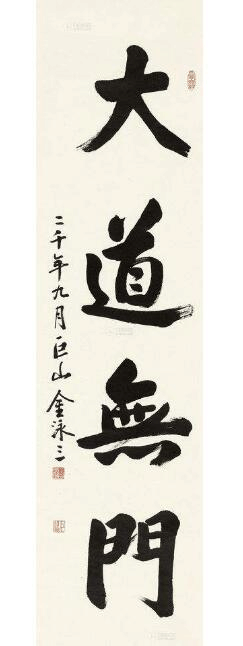 大道無門
二千年九月巨山金泳三